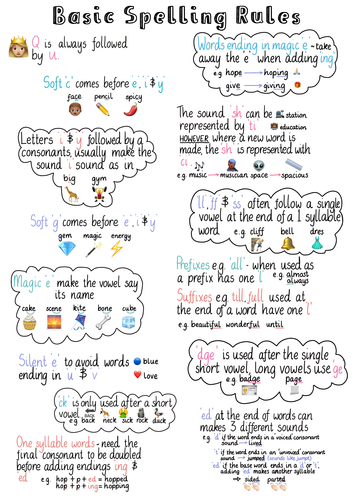 Basic Spelling Rules
Q is always followed
by u.
Soft 'c' comes before 'e', 'i' $ y
face pencil spicy
Letters i $ y followed by a
consonants, usually make the
sound i sound as in..
big gym
Soft 'g' comes before e, i $ y
gem magic energy
Magic 'e' make the vowel say
its name
cake scene kite bone cube
Silent 'e' to avoid words
ending in u $ v
blue
love
'ck' is only used after a short
vowel.
BACK
e.g. back neck sick rock duck
One syllable words - need the
final consonant to be doubled
before adding endings ing $
ed
e.g. hop + p + ed = hopped
hop + p + ing = hopping
Words ending in magic e - take
away the 'e' when adding 'ing'
e.g. hope → hoping
give → giving
The sound 'sh' can be
represented by ti
station
education
HOWEVER where a new word is
made, the 'sh' is represented with
ci.
e.g. music → musician space → spacious
'll', 'ff' $ 'ss', often follow a single
vowel at the end of a 1 syllable
word. e.g. cliff bell dress
Prefixes e.g. 'all' - when used as
a prefix has one l
e.g. also
almost
always
Suffixes e.g. till, full used at
the end of a word have one 'l'
e.g. beautiful wonderful until
'dge' is used after the single
short vowel, long vowels use ge
e.g. badge page
'ed' at the end of words can
makes 3 different sounds
e.g. 'd' if the word ends in a voiced consonant
sound → lived
't' if the word ends in an 'unvoiced' consonant
sound → jumped (sounds like jumpt)
'ed' if the base word ends in a 'd' or 't',
adding 'ed' makes another syllable
→ sided parted